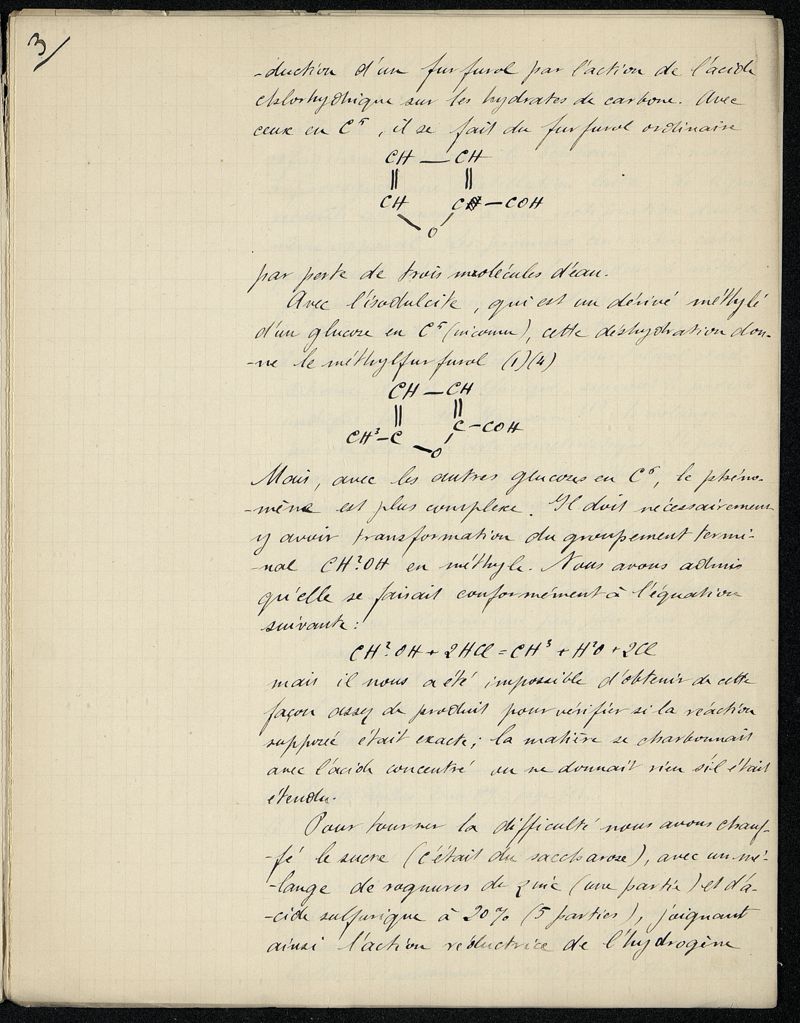 3/
-duction d'un furfurol par l'action de l'acide
chlorhydrique sur les hydrates de carbone. Avec
ceux en C⁵, il se fait du furfurol ordinaire
CH — CH
|| ||
CH C — COH
O
par perte de trois molécules d'eau.
Avec l'isodulcite, qui est un dérivé méthylé
d'un glucose en C⁵ (inconnu), cette déshydration don-
-ne le méthylfurfurol (1)(4)
CH — CH
|| ||
CH³-C C-COH
O
Mais, avec les autres glucoses en C⁶, le phéno-
-mène est plus complexe. Il doit nécessairement
y avoir transformation du groupement termi-
-nal CH².OH en méthyle. Nous avons admis
qu'elle se faisait conformément à l'équation
suivante:
CH².OH + 2HCl = CH³ + H²O + 2Cl
mais il nous a été impossible d'obtenir de cette
façon assez de produit pour vérifier si la réaction
supposée était exacte; la matière se charbonnait
avec l'acide concentré ou ne donnait rien s'il était
étendu.
Pour tourner la difficulté nous avons chauf-
-fé le sucre (c'était du saccharose), avec un mé-
-lange de rognures de zinc (une partie) et d'a-
-cide sulfurique à 20% (5 parties), joignant
ainsi l'action réductrice de l'hydrogène